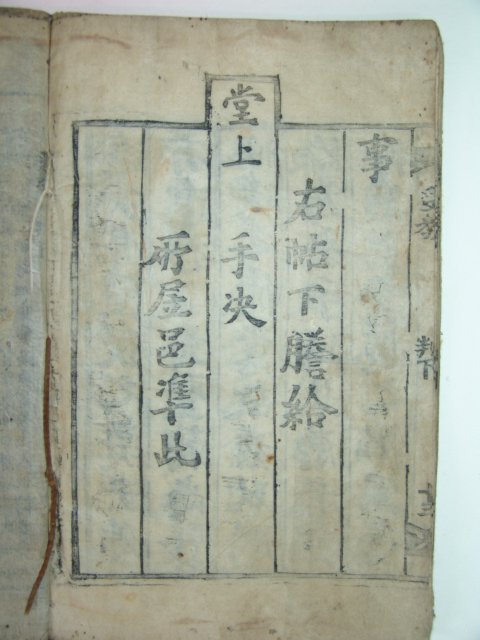 事
右帖下謄給
堂上 手决
所屆邑準此